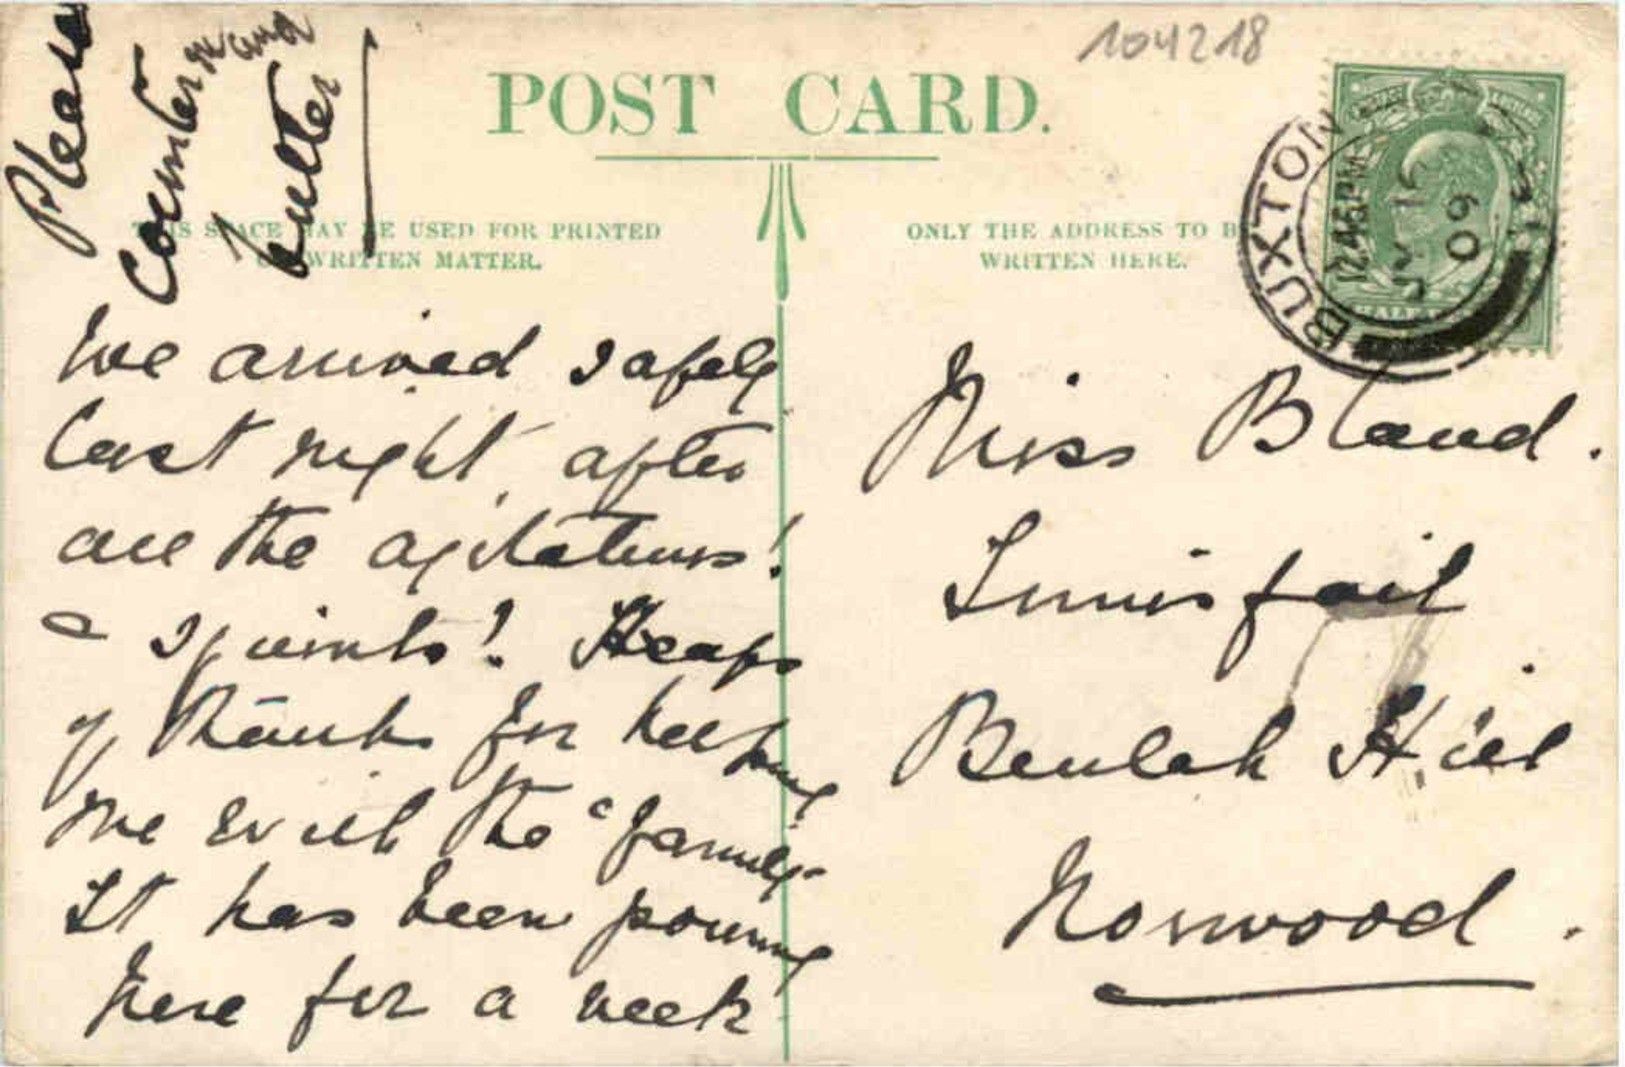 104218
POST CARD.
THIS SPACE MAY BE USED FOR PRINTED
OR WRITTEN MATTER.
ONLY THE ADDRESS TO BE
WRITTEN HERE.
BUXTON
12.45 PM
JY 17
09
Please
butter
We arrived safely
last night, after
all the agitations!
&
Heaps
of thanks for helping
me with the "family
It has been pouring
here for a week
Miss Bland.
Innisfail
Beulah Hill
Norwood.